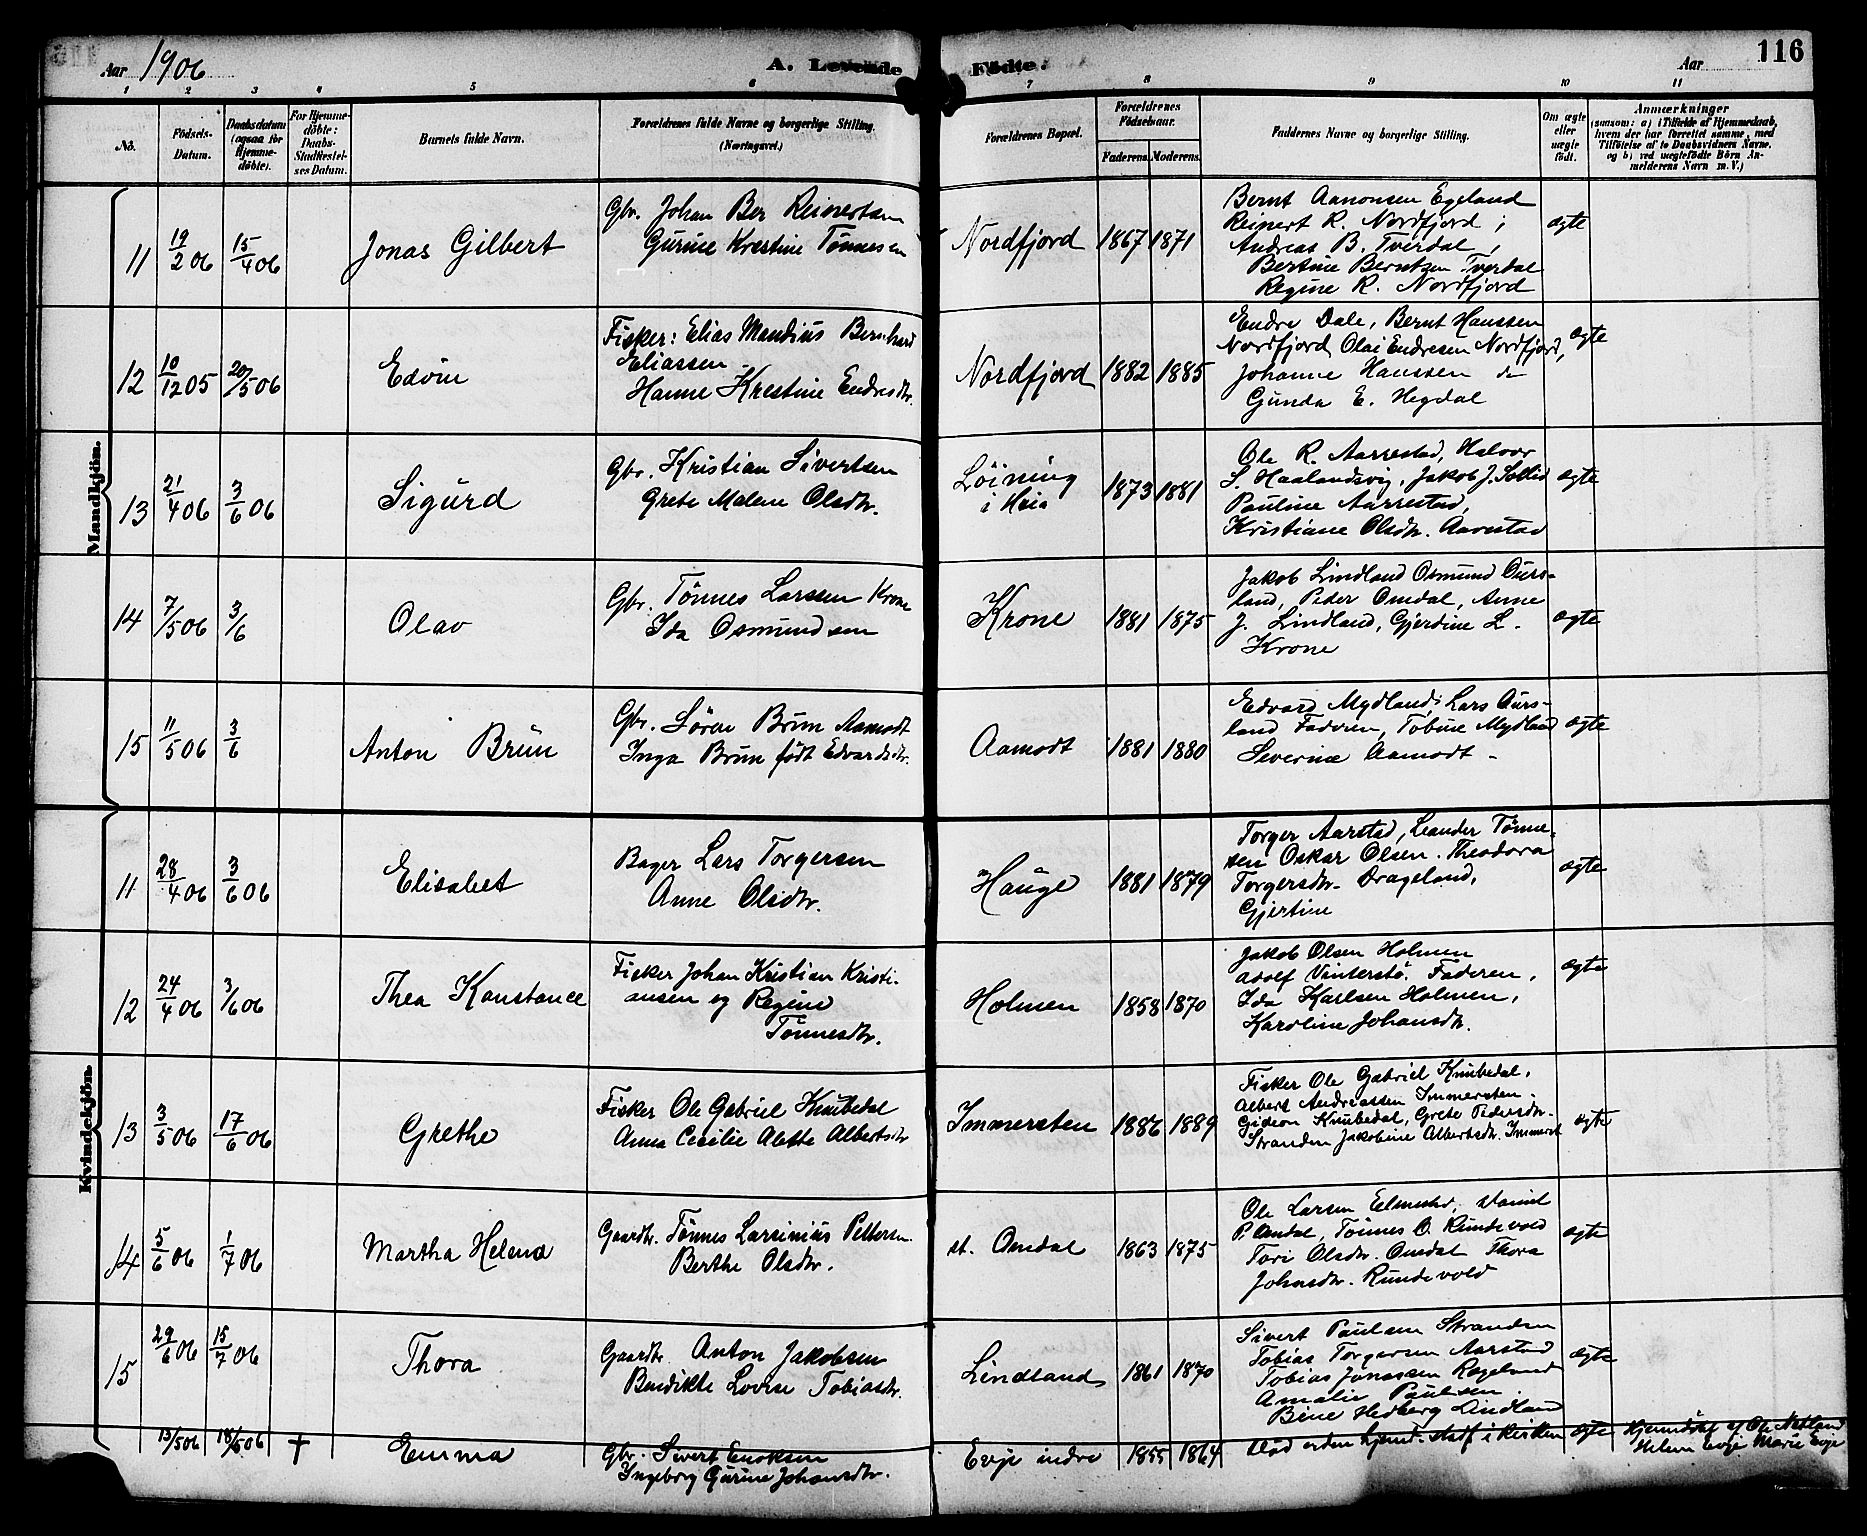 Aar 1906
A. Levende Fødte.
Aar
116
1 2 3 4 5 6 7 8 9 10 11
No.
Fødsels-
Datum.
Daabsdatum
(ogsaa for
Hjemme-
døbte).
For Hjemme-
døbte:
Daabs-
Stadfæstel-
ses Datum.
Barnets fulde Navn.
Forældrenes fulde Navne og borgerlige Stilling.
(Næringsvei.)
Forældrenes Bopæl.
Forældrenes
Fødselsaar.
Faderens. Moderens.
Faddernes Navne og borgerlige Stilling.
Om ægte
eller
uægte
født.
Anmærkninger
(saasom: a) i Tilfælde af Hjemmedaab,
hvem der har forrettet samme, med
Tilføielse af to Daabsvidners Navne,
og b) ved uægtefødte Børn An-
melderens Navn m. V.)
Mandkjøn.
11 19/2 06 15/4 06 Jonas Gilbert
Gbr. Johan Ber Reinertsen
Gurine Krestine Tønnesen
Nordfjord 1867 1871
Bernt Aanonsen Egeland
Reinert R. Nordfjord ;
Andreas B. Tverdal ,
Bertine Berntsen Tverdal
Regine R. Nordfjord
ægte
12 10/12 05 20/5 06 Edvin
Fisker: Elias Mandius Bernhard
Eliassen
Hanne Krestine Endresdtr.
Nordfjord 1882 1885
Endre Dale, Bernt Hanssen
Nordfjord Olai Endresen Nordfjord,
Johanne Hanssen do
Gunda E. Hegdal
ægte
13 21/4 06 3/6 06 Sigurd
Gbr. Kristian Sivertsen
Grete Malene Olsdtr.
Løining
i Heia
1873 1881
Ole R. Aarrestad, Halvor
S. Haalandsvig, Jakob J. Sollid
Pauline Aarrestad,
Kristiane Olsdtr. Aarestad
ægte
14 7/5 06 3/6 Olav
Gbr. Tønnes Larssen Krone
Ida Osmundsen
Krone 1881 1875
Jakob Lindland Osmund Ours-
land, Peder Omdal, Anne
J. Lindland, Gjerdine L.
Krone
ægte
15 11/5 06 3/6 Anton Brun
Gbr. Søren Brun Aamodt
Inga Brun født Edvardsdtr.
Aamodt 1881 1880
Edvard Mydland, Lars Ours-
land Faderen, Tobine Mydland
Severine Aamodt -
ægte
Kvindekjøn.
11 28/4 06 3/6 06 Elisabet
Bager Lars Torgersen
Anne Olsdtr.
Hauge 1881 1879
Torger Aarstad, Leander Tønne-
sen Oskar Olsen. Theodora
Torgersdtr. Drageland,
Gjertine
ægte
12 24/4 06 3/6 06 Thea Konstance
Fisker Johan Kristian Kristi-
ansen og Regine
Tønnesdtr.
Holmen 1858 1870
Jakob Olsen Holmen
Adolf Vinterstø. Faderen,
Ida Karlsen Holmen,
Karoline Johansdtr.
ægte
13 3/5 06 17/6 06 Grethe
Fisker Ole Gabriel Knubedal
Anna Cecilie Alette Albertsdtr
Immersten 1886 1889
Fisker Ole Gabriel Knubedal,
Albert Andreassen Immersten.
Gideon Knubedal, Grete Pedersdtr.
Stranden Jakobine Albertsdtr. Immerst
ægte
14 5/6 06 1/7 06 Martha Helene
Gaardbr. Tønnes Larsinius Pettersen
Berthe Olsdtr.
st. Omdal 1863 1875
Ole Larsen Eelmestad, Daniel
P. Omdal, Tønnes O. Rundevold
Tori Olsdtr. Omdal Thora
Johnsdtr. Rundevold
ægte
15 29/6 06 15/7 06 Thora
Gaardbr. Anton Jakobsen
Bendikte Lovise Tobiasdtr.
Lindland 1861 1870
Sivert Paulsen Stranden
Tobias Torgersen Aarstad
Tobias Jonassen Rageland
Amalie Paulsen
Bine Hedberg Lindland
ægte
13/5 06 18/5 06 † Emma
Gbr. Sivert Enoksen
Ingeborg Gurine Johansdtr.
Evje indre 1855 1864
død uden hjemd. stadf i kirken ægte
Hjemdøbt af Ole Netland
Helene Evje Marie Evje